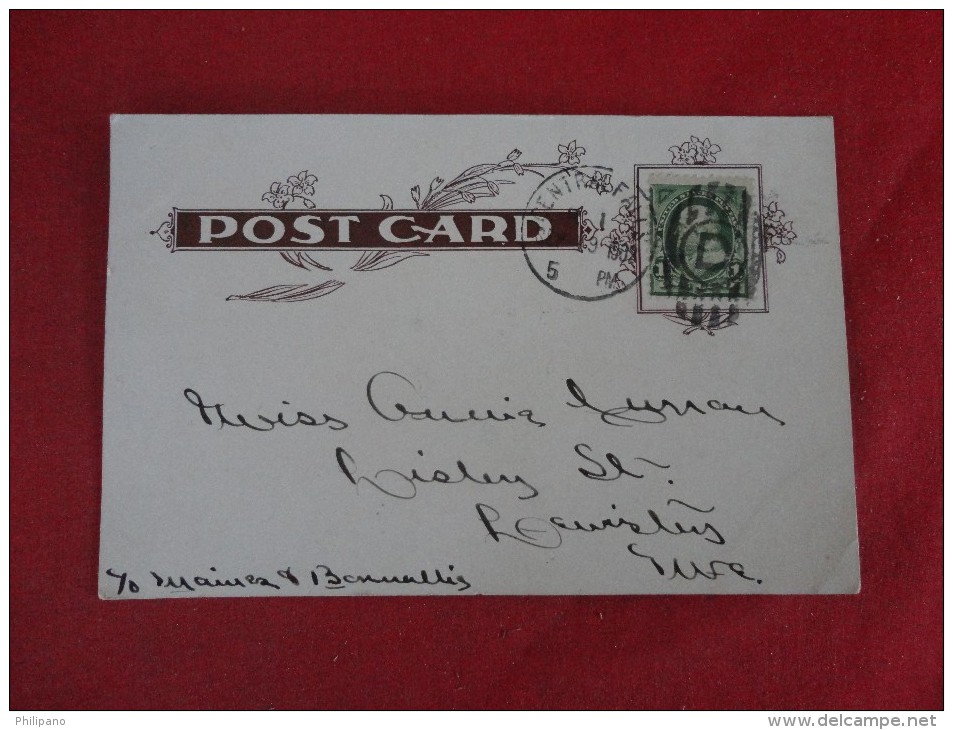 POST CARD
CENTRAL FALLS
5 PM
1
Miss Annie Curran
Lisbon St.
Lewiston
Me.
c/o Maines & Bonnallie
Philipano
www.delcampe.net